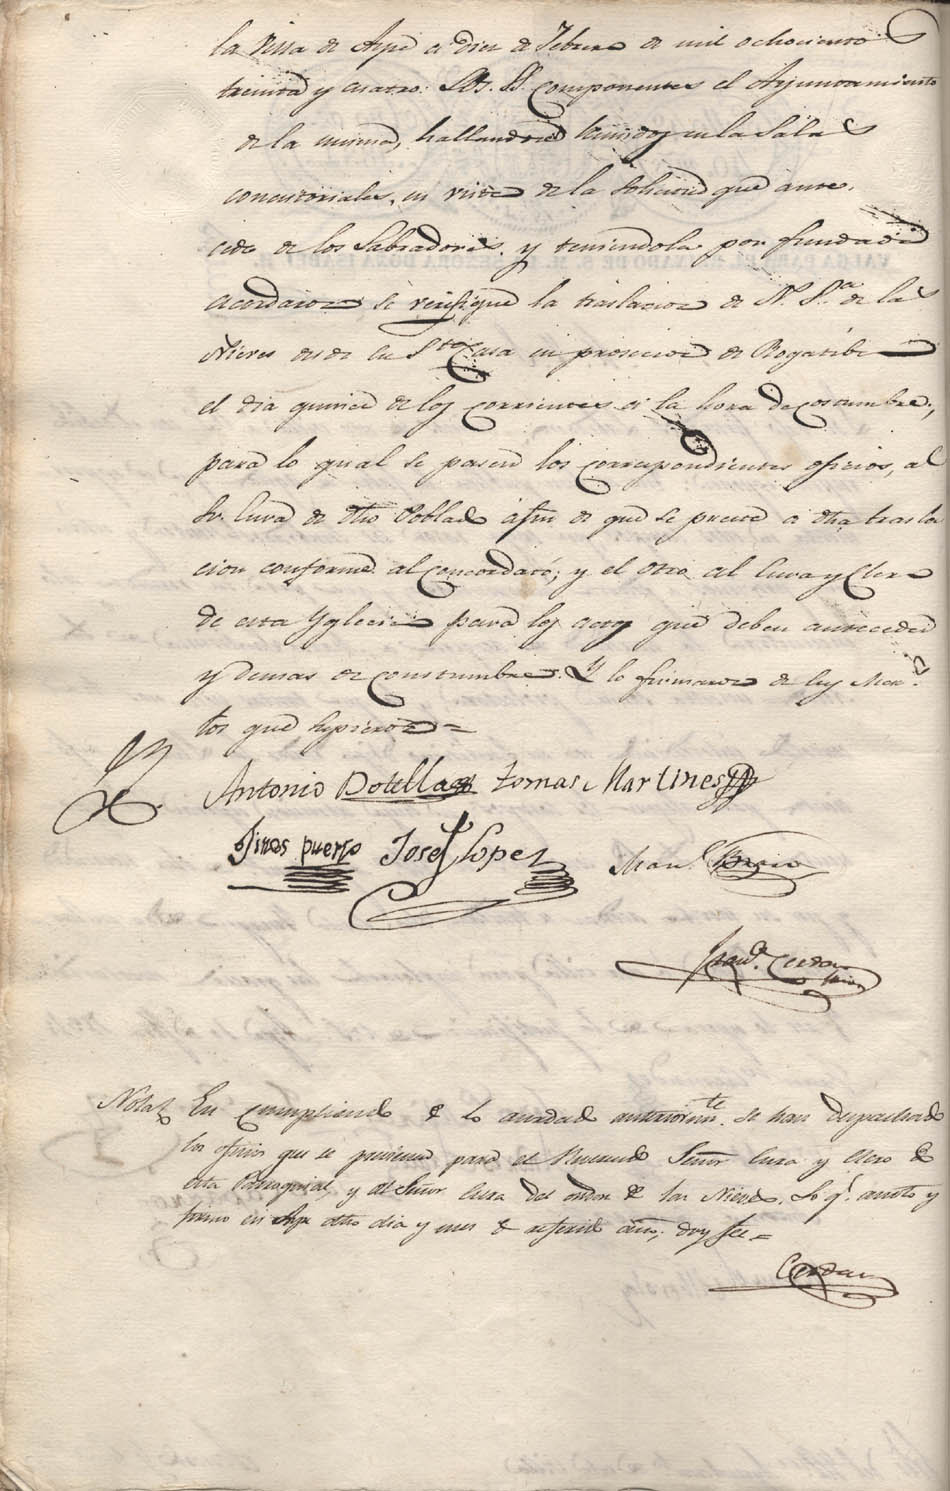 la Villa de Aspe a diez de Febrero de mil ochociento
treinta y cuatro: Los SS. componentes el Ayuntamiento
de la misma, hallandose reunidos en la Sala
concistoriales, en virtd de la Solicitud que ante-
cede de los Labradores y teniendola por fundada
acordaron se verifique la traslacion de N. S.ra de las
Nieves desde su Sta Casa en prosecion de Rogatiba
el dia quince de los corrientes a la hora de costumbre;
para lo qual se pasen los correspondientes oficios, al
Sr. Cura de dho Poblado afin de que se preste a dha trasla
cion conforme al Concordato; y el otro al Cura y Clero
de esta Yglecia para los actos que deben anteceder
y demas de constumbre. Y lo firmaron de sus Mer.s
los que supieron =
Antonio Botella Tomas Martines
Gines puerto Josef Lopez Man.l
Fran.co Cerdan
Nota En cumplimiento de lo acordado anteriorm.te se han despachado
los oficios que se previenen para el Reverendo Señor Cura y Clero de
esta Parroquial y al Señor Cura del de las Nieves. Lo q.e anoto y
firmo en Aspe dho dia y mes de referido año, doy fee =
Cerdan